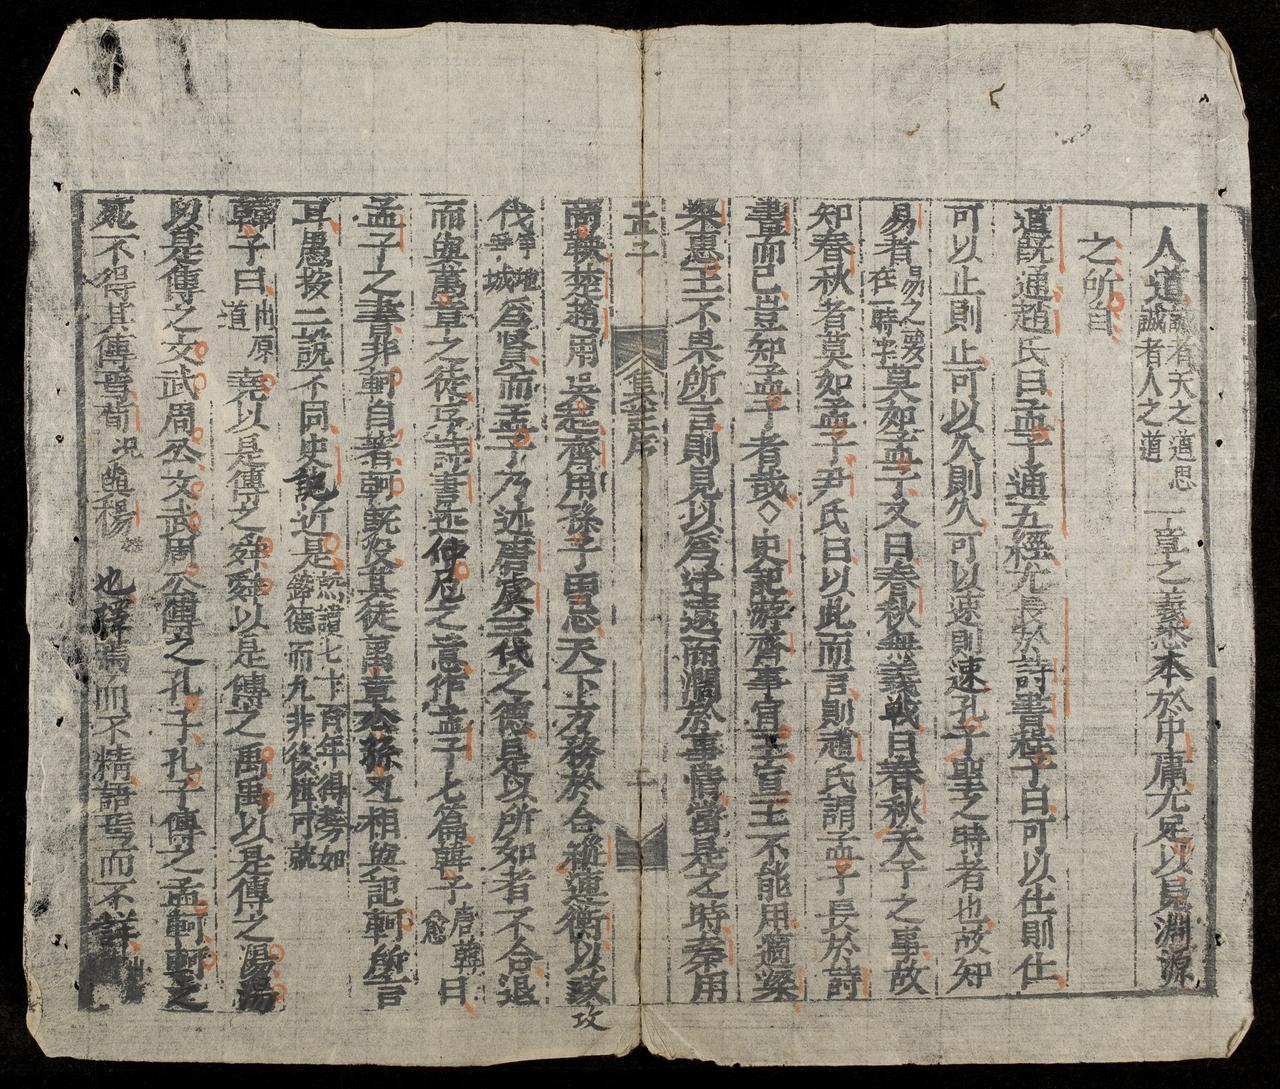 人道誠者天之道思誠者人之道一章之義悉本於中庸尤足以見淵源
之所自
道旣通趙氏曰孟子通五經尤長於詩書程子曰可以仕則仕
可以止則止可以久則久可以速則速孔子聖之時者也故知
易者易之要在一時字莫如孟子又曰春秋無義戰曰春秋天子之事故
知春秋者莫如孟子尹氏曰以此而言則趙氏謂孟子長於詩
書而已豈知孟子者哉◇史記游齊事宣王宣王不能用適梁
梁惠王不果所言則見以爲迂遠而濶於事情當是之時秦用
孟子 集註序 二
商鞅楚趙用吳起齊用孫子田忌天下方務於合縱連衡以政
攻
伐爭地爭城爲賢而孟子乃述唐虞三代之德是以所如者不合退
而與萬章之徒序詩書述仲尼之意作孟子七篇韓子唐韓愈曰
孟子之書非軻自著軻旣沒其徒萬章公孫丑相與記軻所言
耳愚按二說不同史記近是熟讀七篇德而九非後
韓子曰出原道堯以是傳之舜舜以是傳之禹禹以是傳之湯湯
以是傳之文武周公文武周公傳之孔子孔子傳之孟軻軻之
死不得其傳焉荀況與楊雄也擇焉而不精語焉而不詳